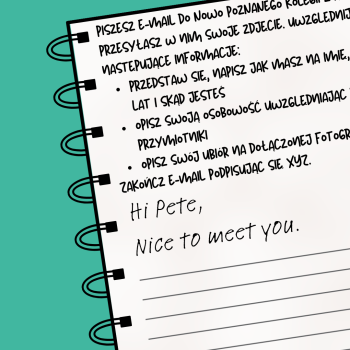 PISZESZ E-MAIL DO NOWO POZNANEGO
PRZESYŁASZ W NIM SWOJE ZDJĘCIE.
NASTĘPUJĄCE INFORMACJE:
• PRZEDSTAW SIĘ, NAPISZ JAK MASZ NA IMIĘ,
LAT I SKĄD JESTEŚ
• OPISZ SWOJĄ OSOBOWOŚĆ UWZGLĘDNIAJĄC
PRZYMIOTNIKI
• OPISZ SWÓJ UBIÓR NA DOŁĄCZONEJ
ZAKOŃCZ E-MAIL PODPISUJĄC SIĘ XYZ.
Hi Pete,
Nice to meet you.